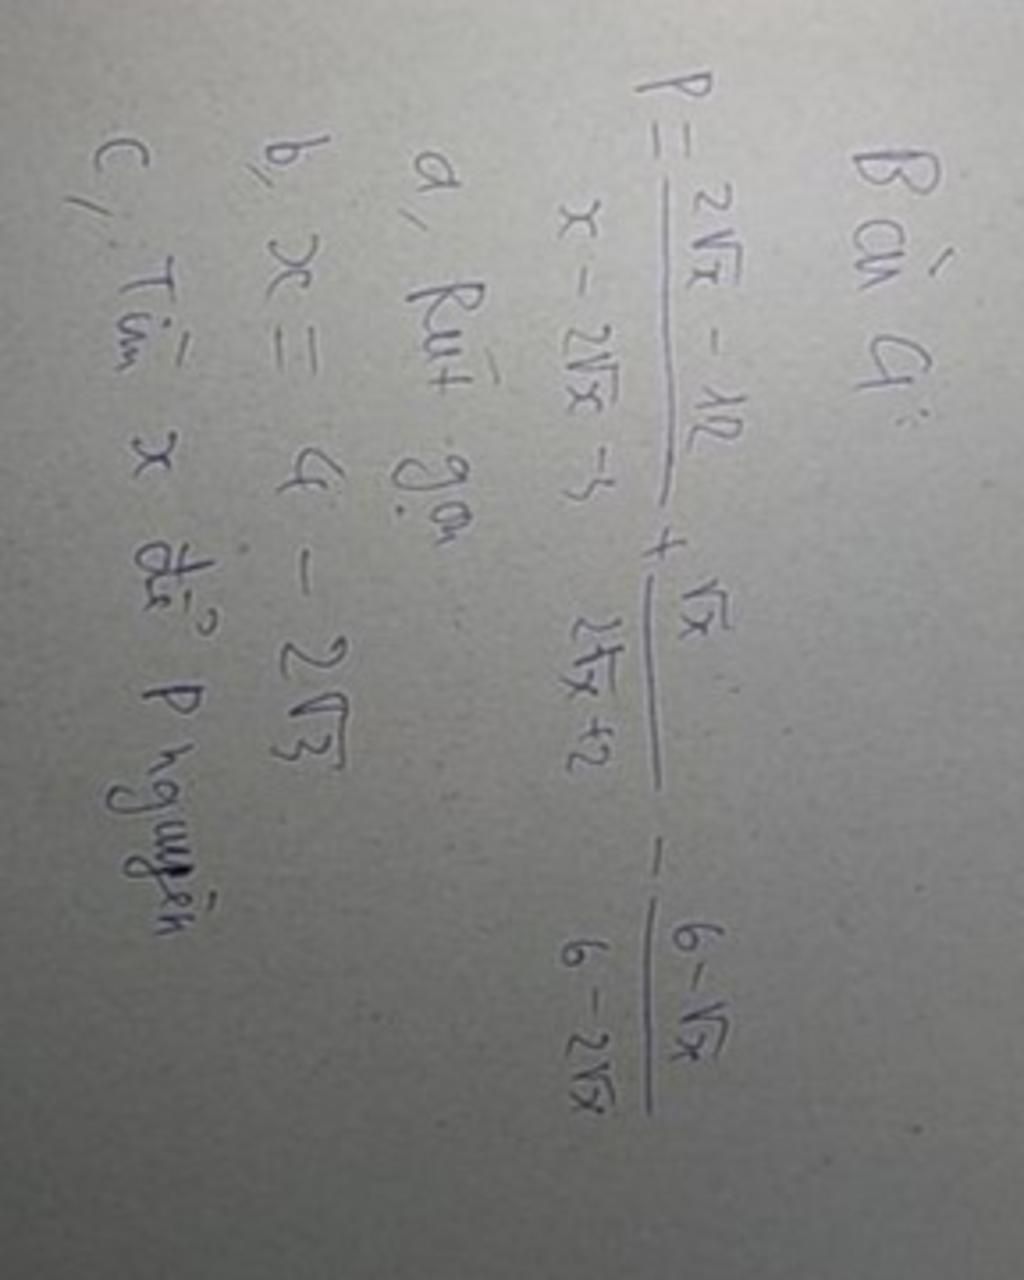 Bài 4:
P = \frac{2\sqrt{x} - 12}{x - 2\sqrt{x} - 3} + \frac{\sqrt{x}}{2\sqrt{x} + 2} - \frac{6 - \sqrt{x}}{6 - 2\sqrt{x}}
a, Rút gọn
b, x = 4 - 2\sqrt{3}
c, Tìm x để P nguyên